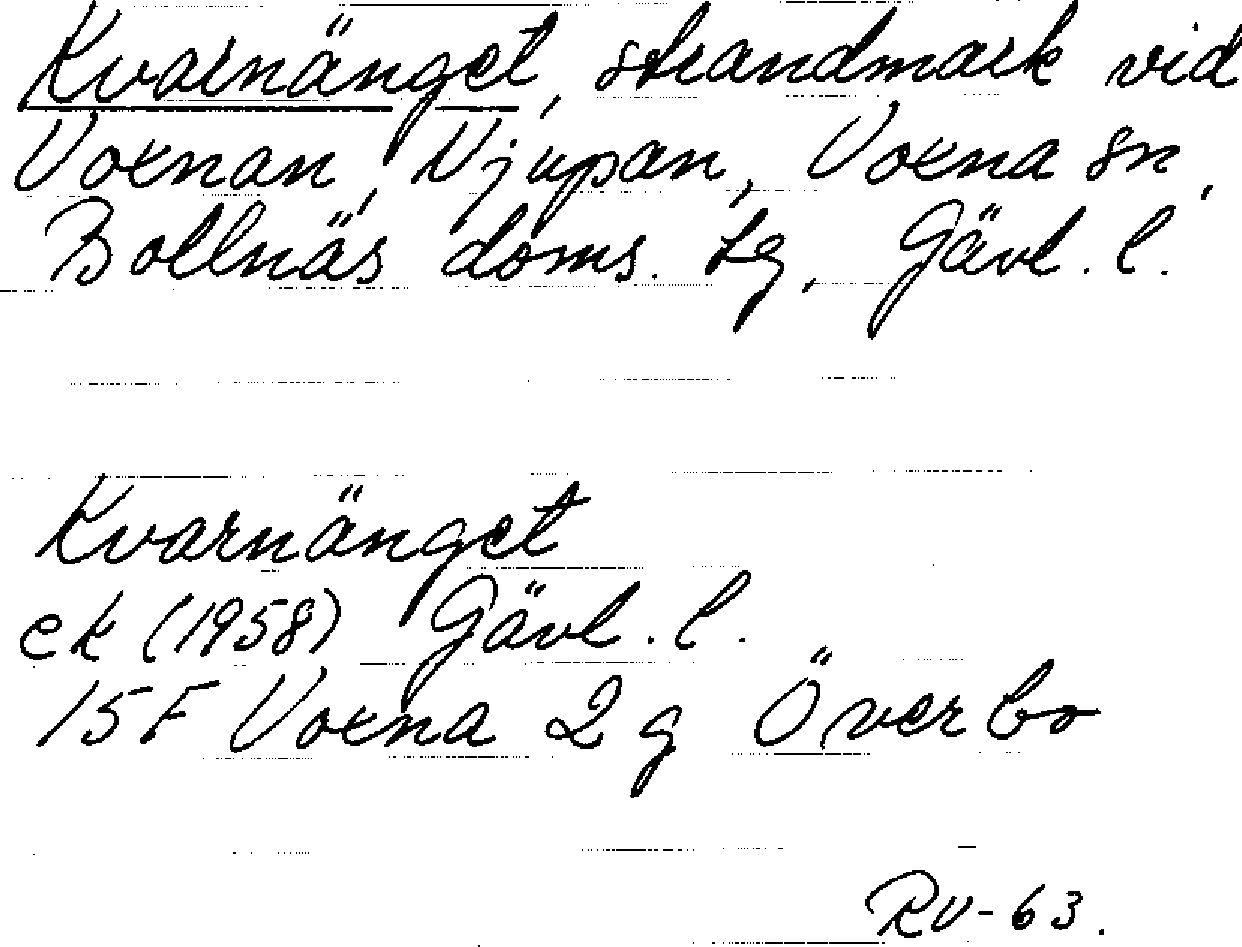 Kvarnänget, strandmark vid
Voxnan, Njupan, Voxna sn,
Bollnäs doms. tg, Gävl. l.
Kvarnänget
ek (1958) Gävl. l.
15F Voxna 2g Överbo
RV-63.